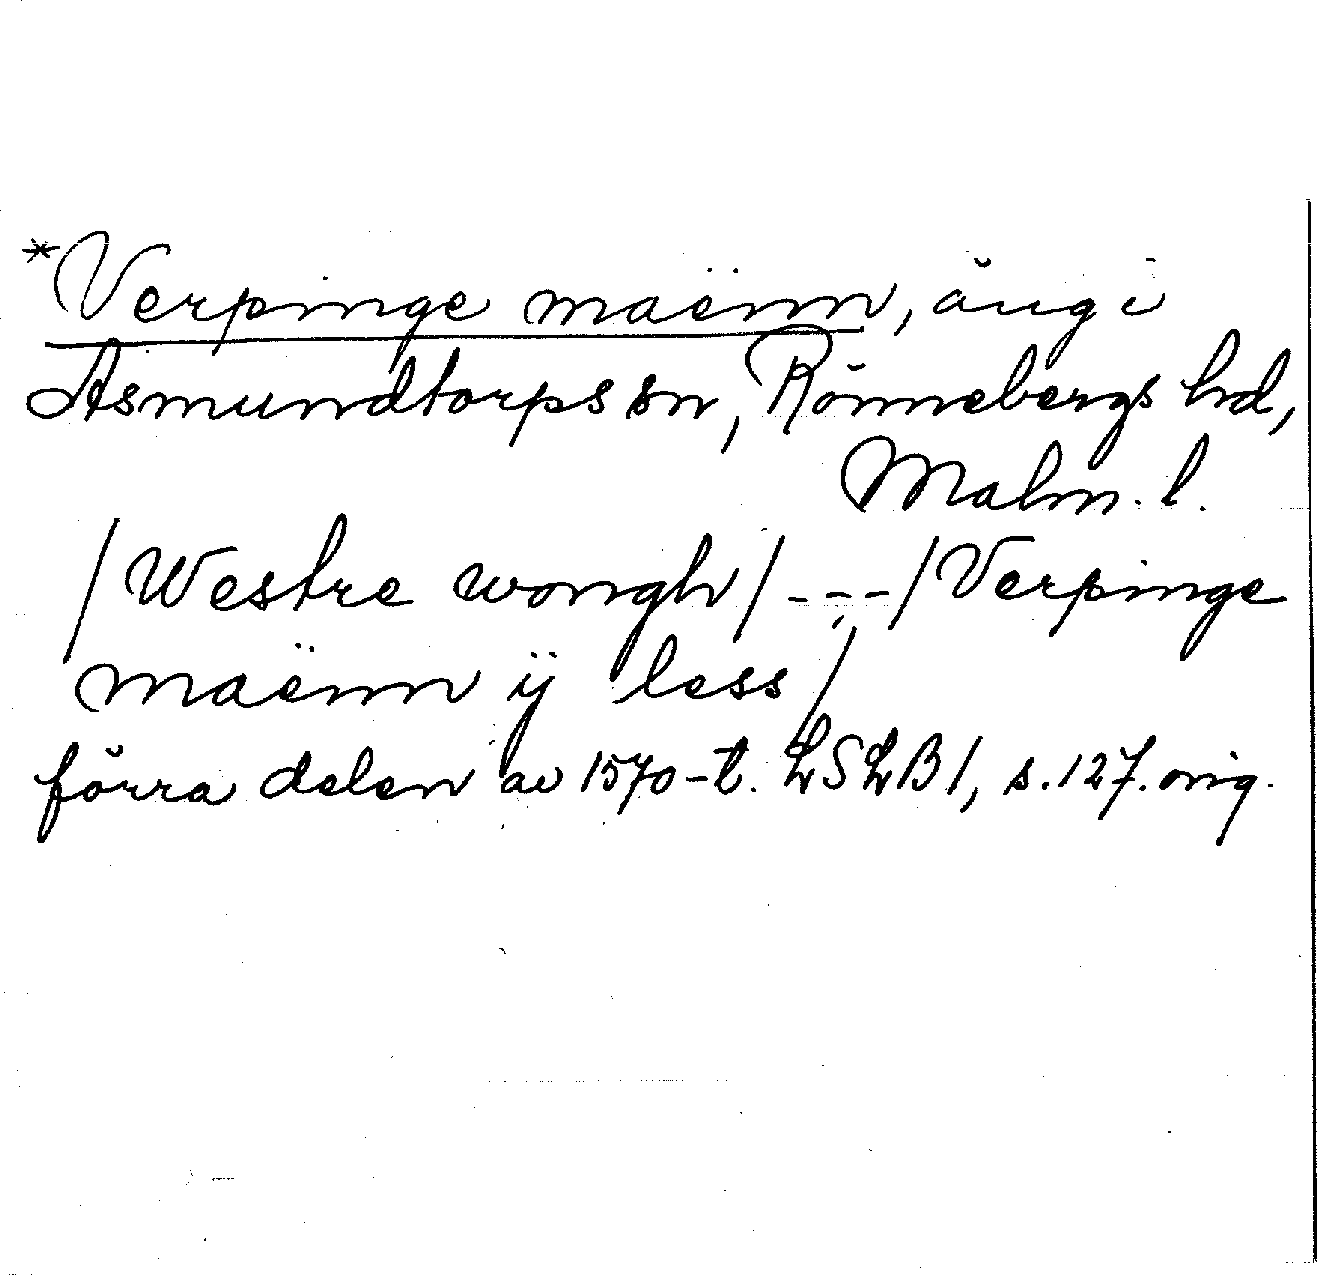 *Verpinge maënn, äng i
Asmundtorps sn, Rönnebergs hd,
Malm. l.
/Westre wongh/---/Verpinge
maënn ÿ less/
förra delen av 1570-t. LSLB1, s.127. orig.